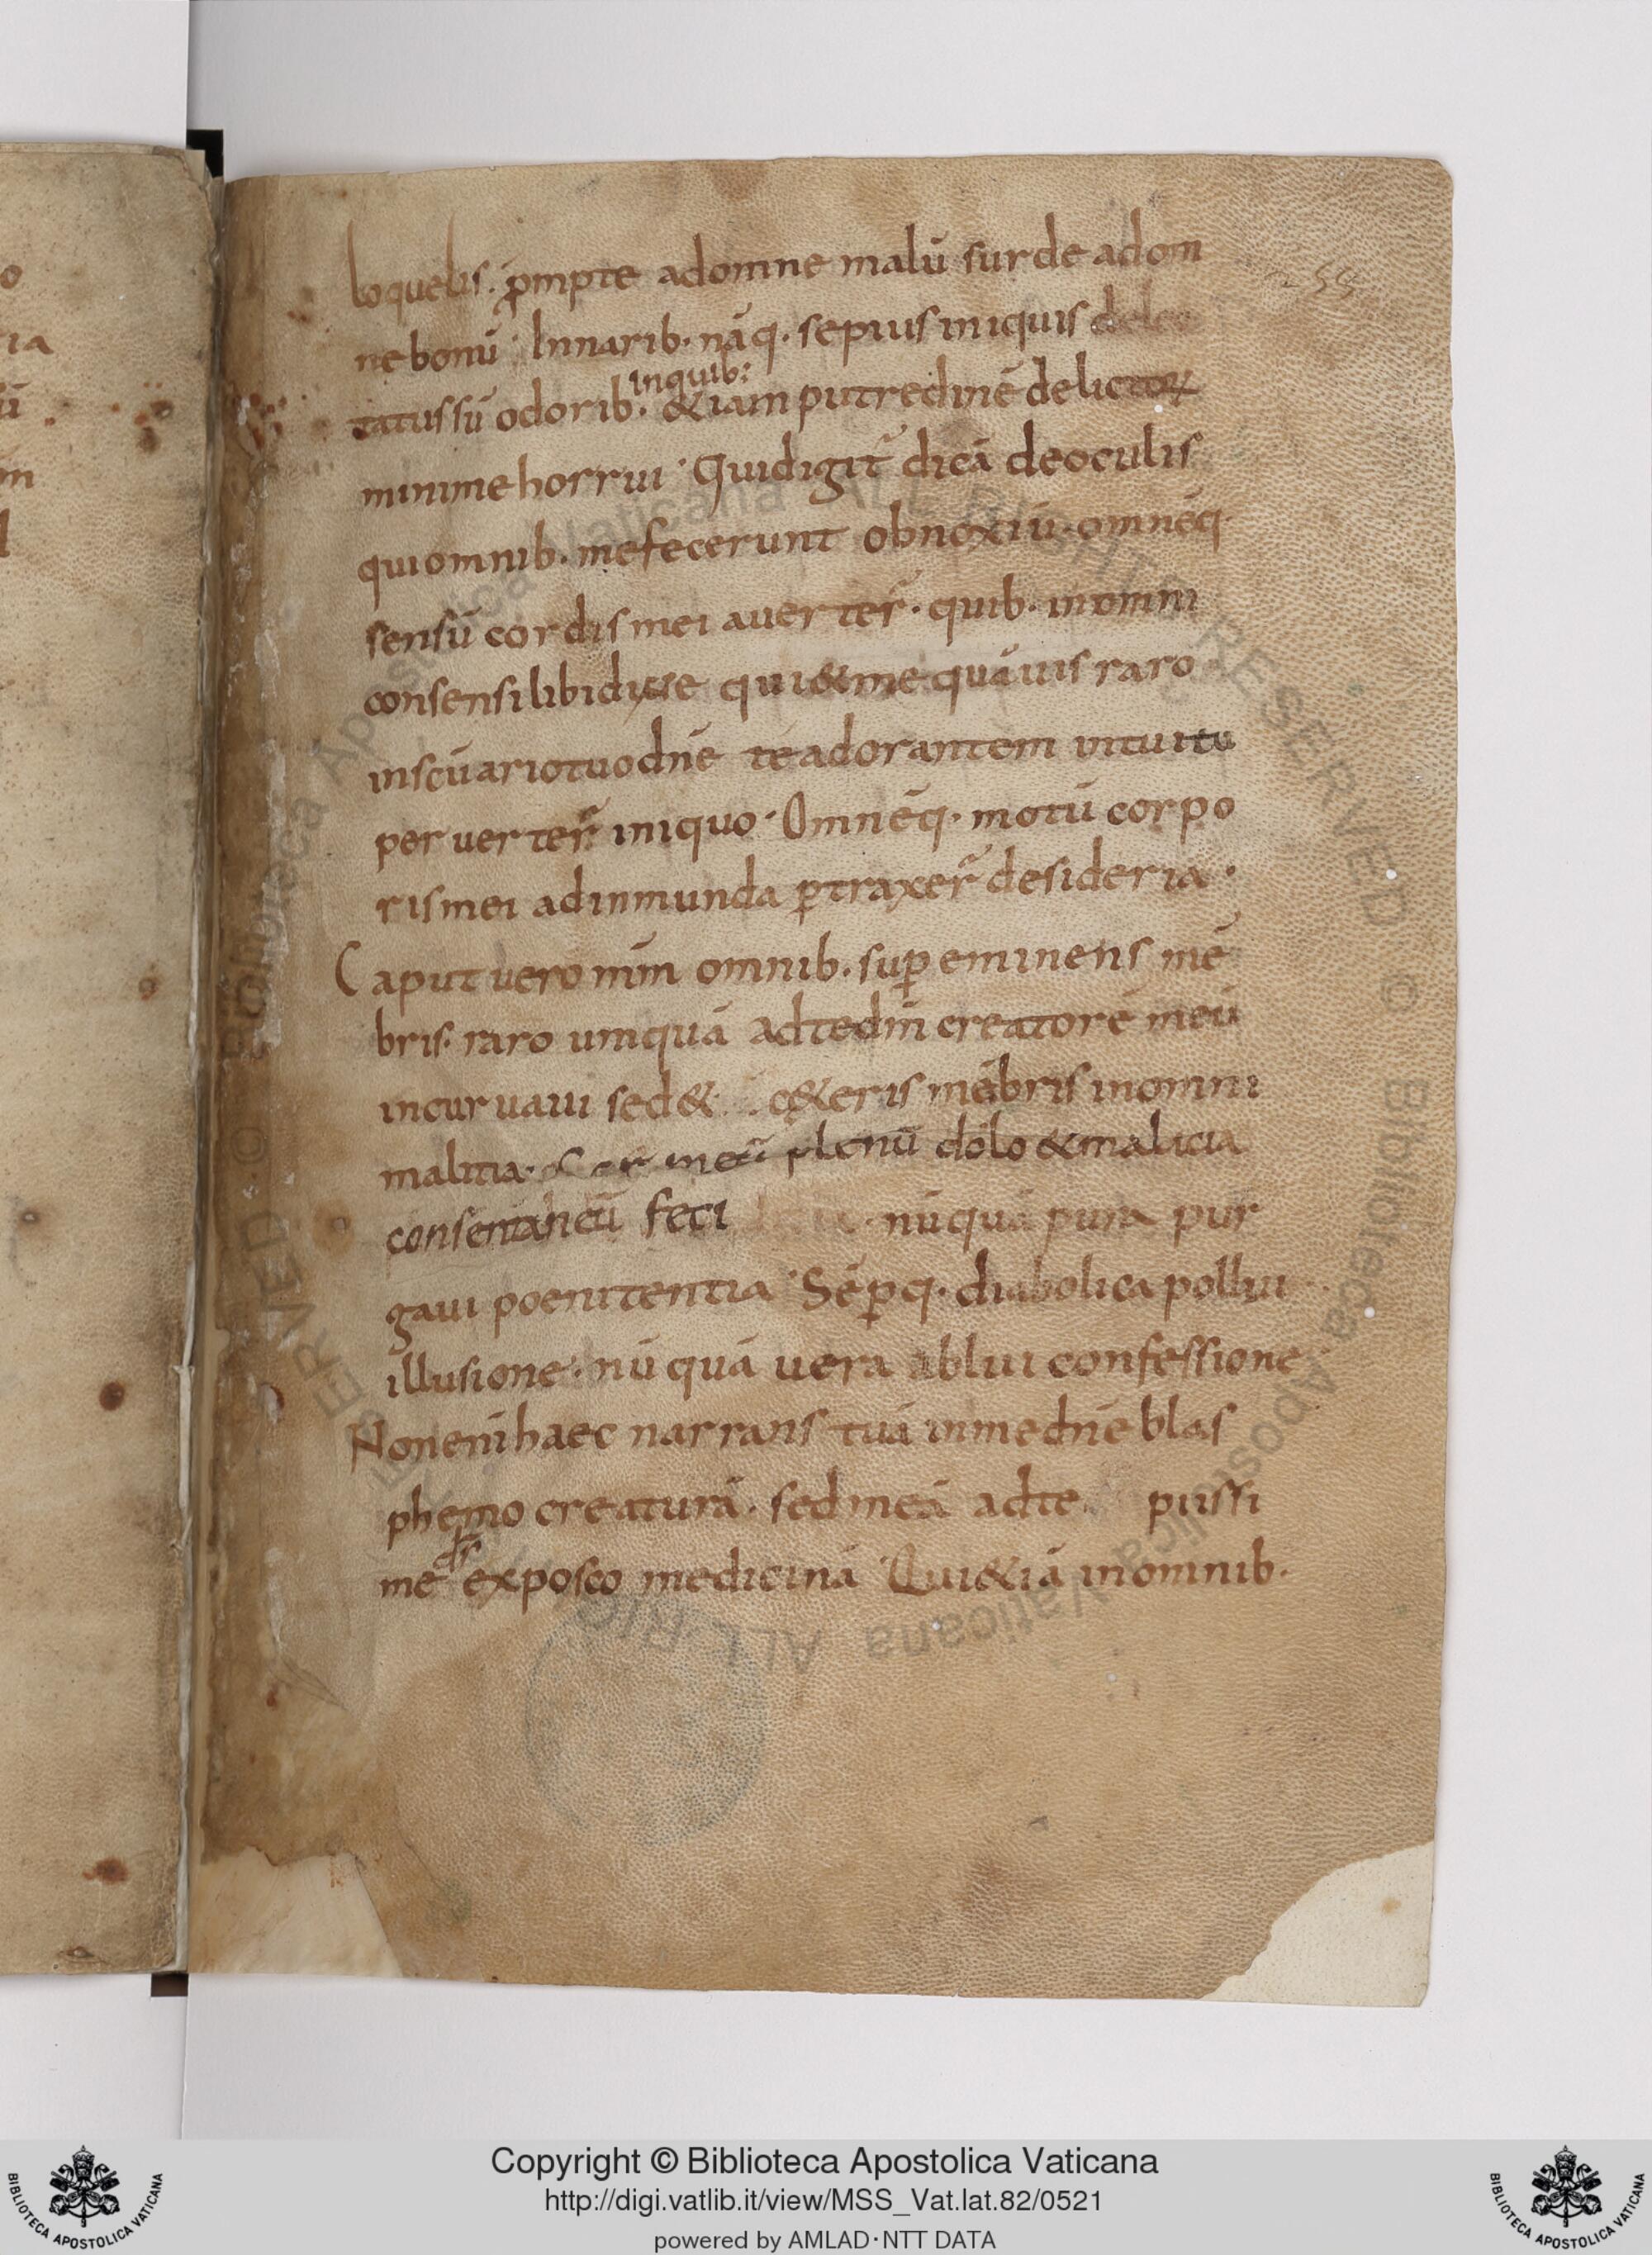 loquelis. ꝓmpte adomne malū surde adom
255
nebonū· Innarib· nāq· sepius iniquis delec
inquib:
tatussū odorib· &iam putredinē delictoꝝ
minime horrui· Quidigit᷑ dicā deoculis
quiomnib· mefecerunt obnoxiū· omnēq·
sensū cordismei auerter̄· quib· inomni
consensi libidine qui&me quāuis raro
inscūariotuodnē teadorantem intuitu
peruerter̄ iniquo· Omnēq· motū corpo
rismei adinmunda ꝑtraxer̄ desideria·
Caput vero mm̄ omnib· suꝑeminens mē
bris· raro umquā adtedm̄ creatorē meū
incuruaui sed& c&eris mēbris inomni
malitia· Cor meū plenū dolo &malicia
consentaneū feci nūquā pura pur
gaui poenitentia· Sēꝑq· diabolica pollui
illusione· nūquā uera ablui confessione·
Nonenī haec narrans tuā inmednē blas
phemo creaturā· sedmeā adte piissi
dš
me exposco medicinā· Qui&iā inomnib·
Copyright © Biblioteca Apostolica Vaticana
http://digi.vatlib.it/view/MSS_Vat.lat.82/0521
powered by AMLAD·NTT DATA
BIBLIOTECA APOSTOLICA VATICANA
BIBLIOTECA APOSTOLICA VATICANA